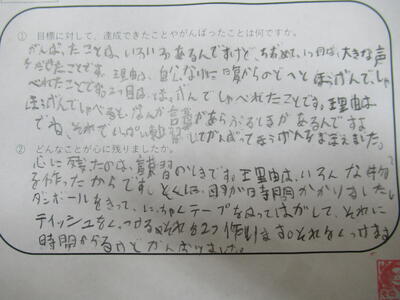 ① 目標に対して、達成できたことやがんばったことは何ですか。
がんばったことは、いろいろあるんですけど、まとめて、1つ目は、大きな声
をだせたことです。理由は、自分なりに日夏からのどへとほうげんで、しゃ
べれたことです。2つ目は、ほうげんでしゃべれたことです。理由は
ほうげんでしゃべると、なんか言葉があらぶるときがあるんですよ
でね、それでいっぱい練習してがんばってほうげんをおぼえました。
② どんなことが心に残りましたか。
心に残ったのは、練習のときです。理由は、いろんな物
を作ったからです。とくには、時間かかりました
ダンボールをきって、にっちゃくテープをぬってはがして、それに
ティッシュをくっつけるそれを2つ作ります。それをくっつけます
時間かかるけどがんばりました。